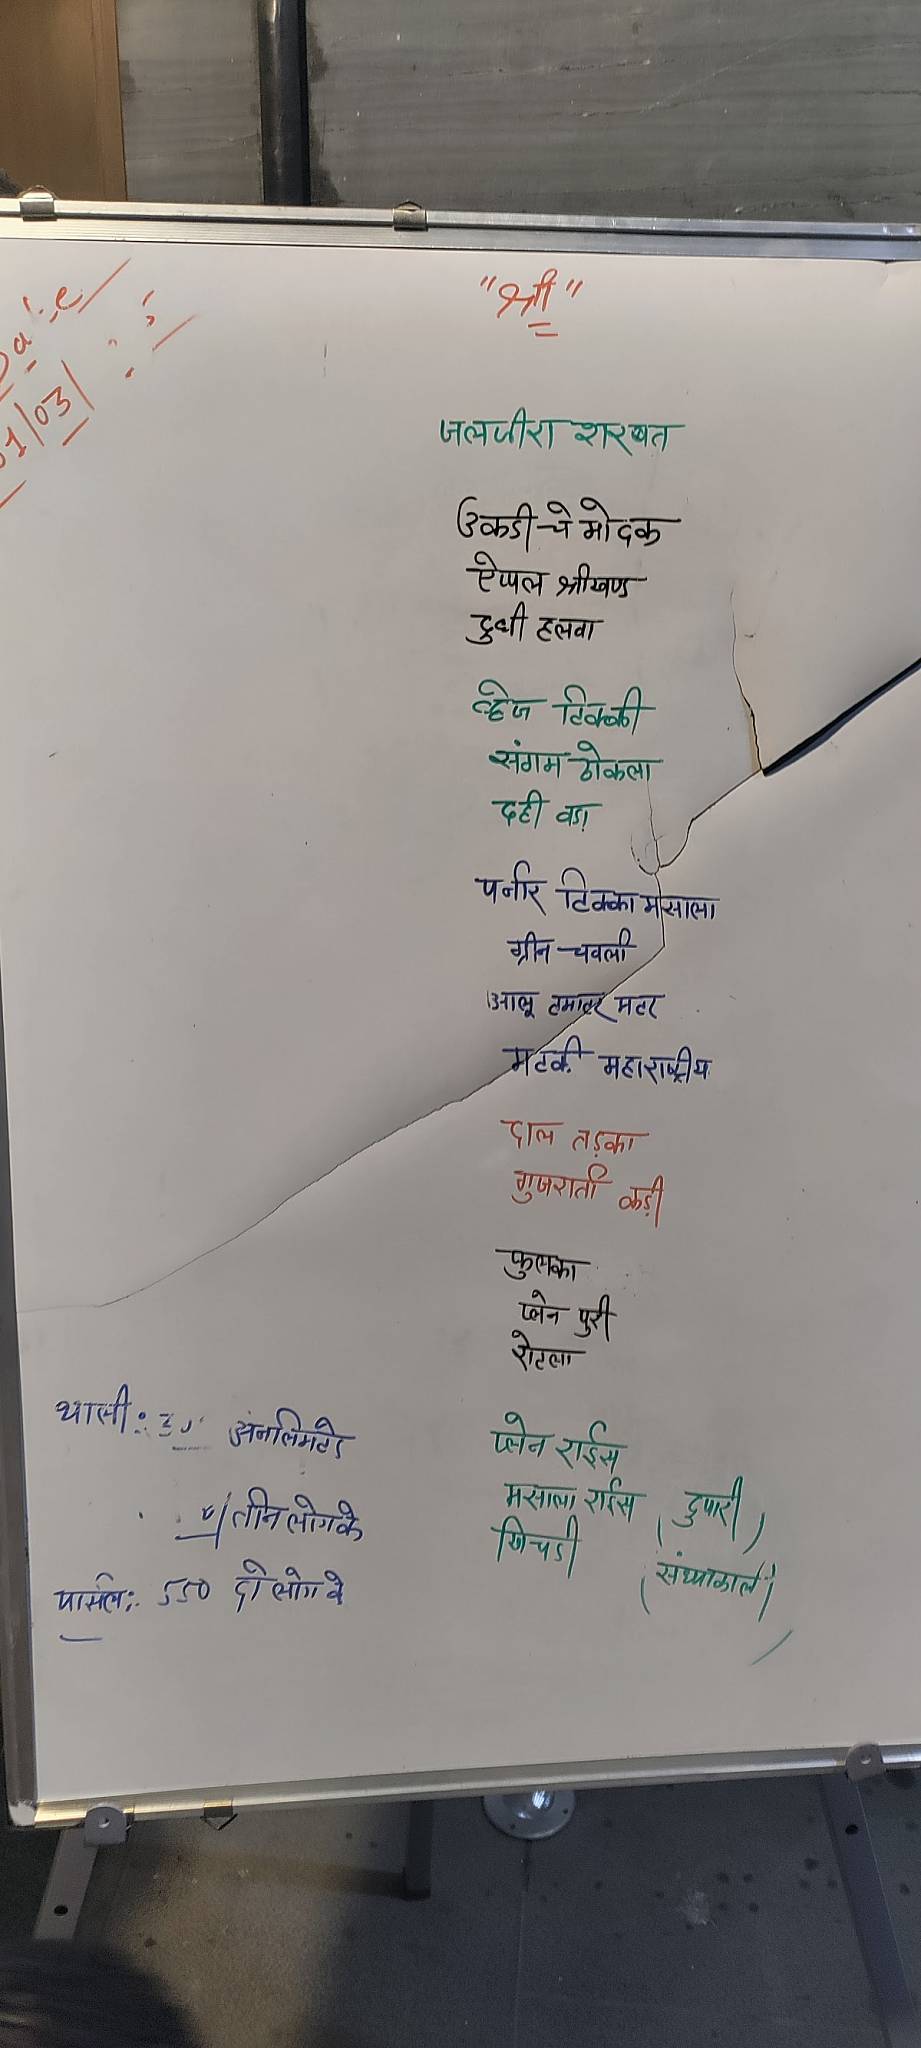 "श्री"
Date
01/03/
जलजीरा शरबत
उकडीचे मोदक
ऐप्पल श्रीखण्ड
दुधी हलवा
व्हेज टिक्की
संगम ढोकला
दही वडा
पनीर टिक्का मसाला
ग्रीन चवली
आलू टमाटर मटर
मटकी महाराष्ट्रीय
दाल तड़का
गुजराती कड़ी
फुलका
प्लेन पुरी
रोटला
प्लेन राईस
मसाला राईस (दुपारी)
खिचडी (संध्याकाळी)
थाली: अनलिमटेड
तीन लोग के
पार्सल: 550 दो लोग के